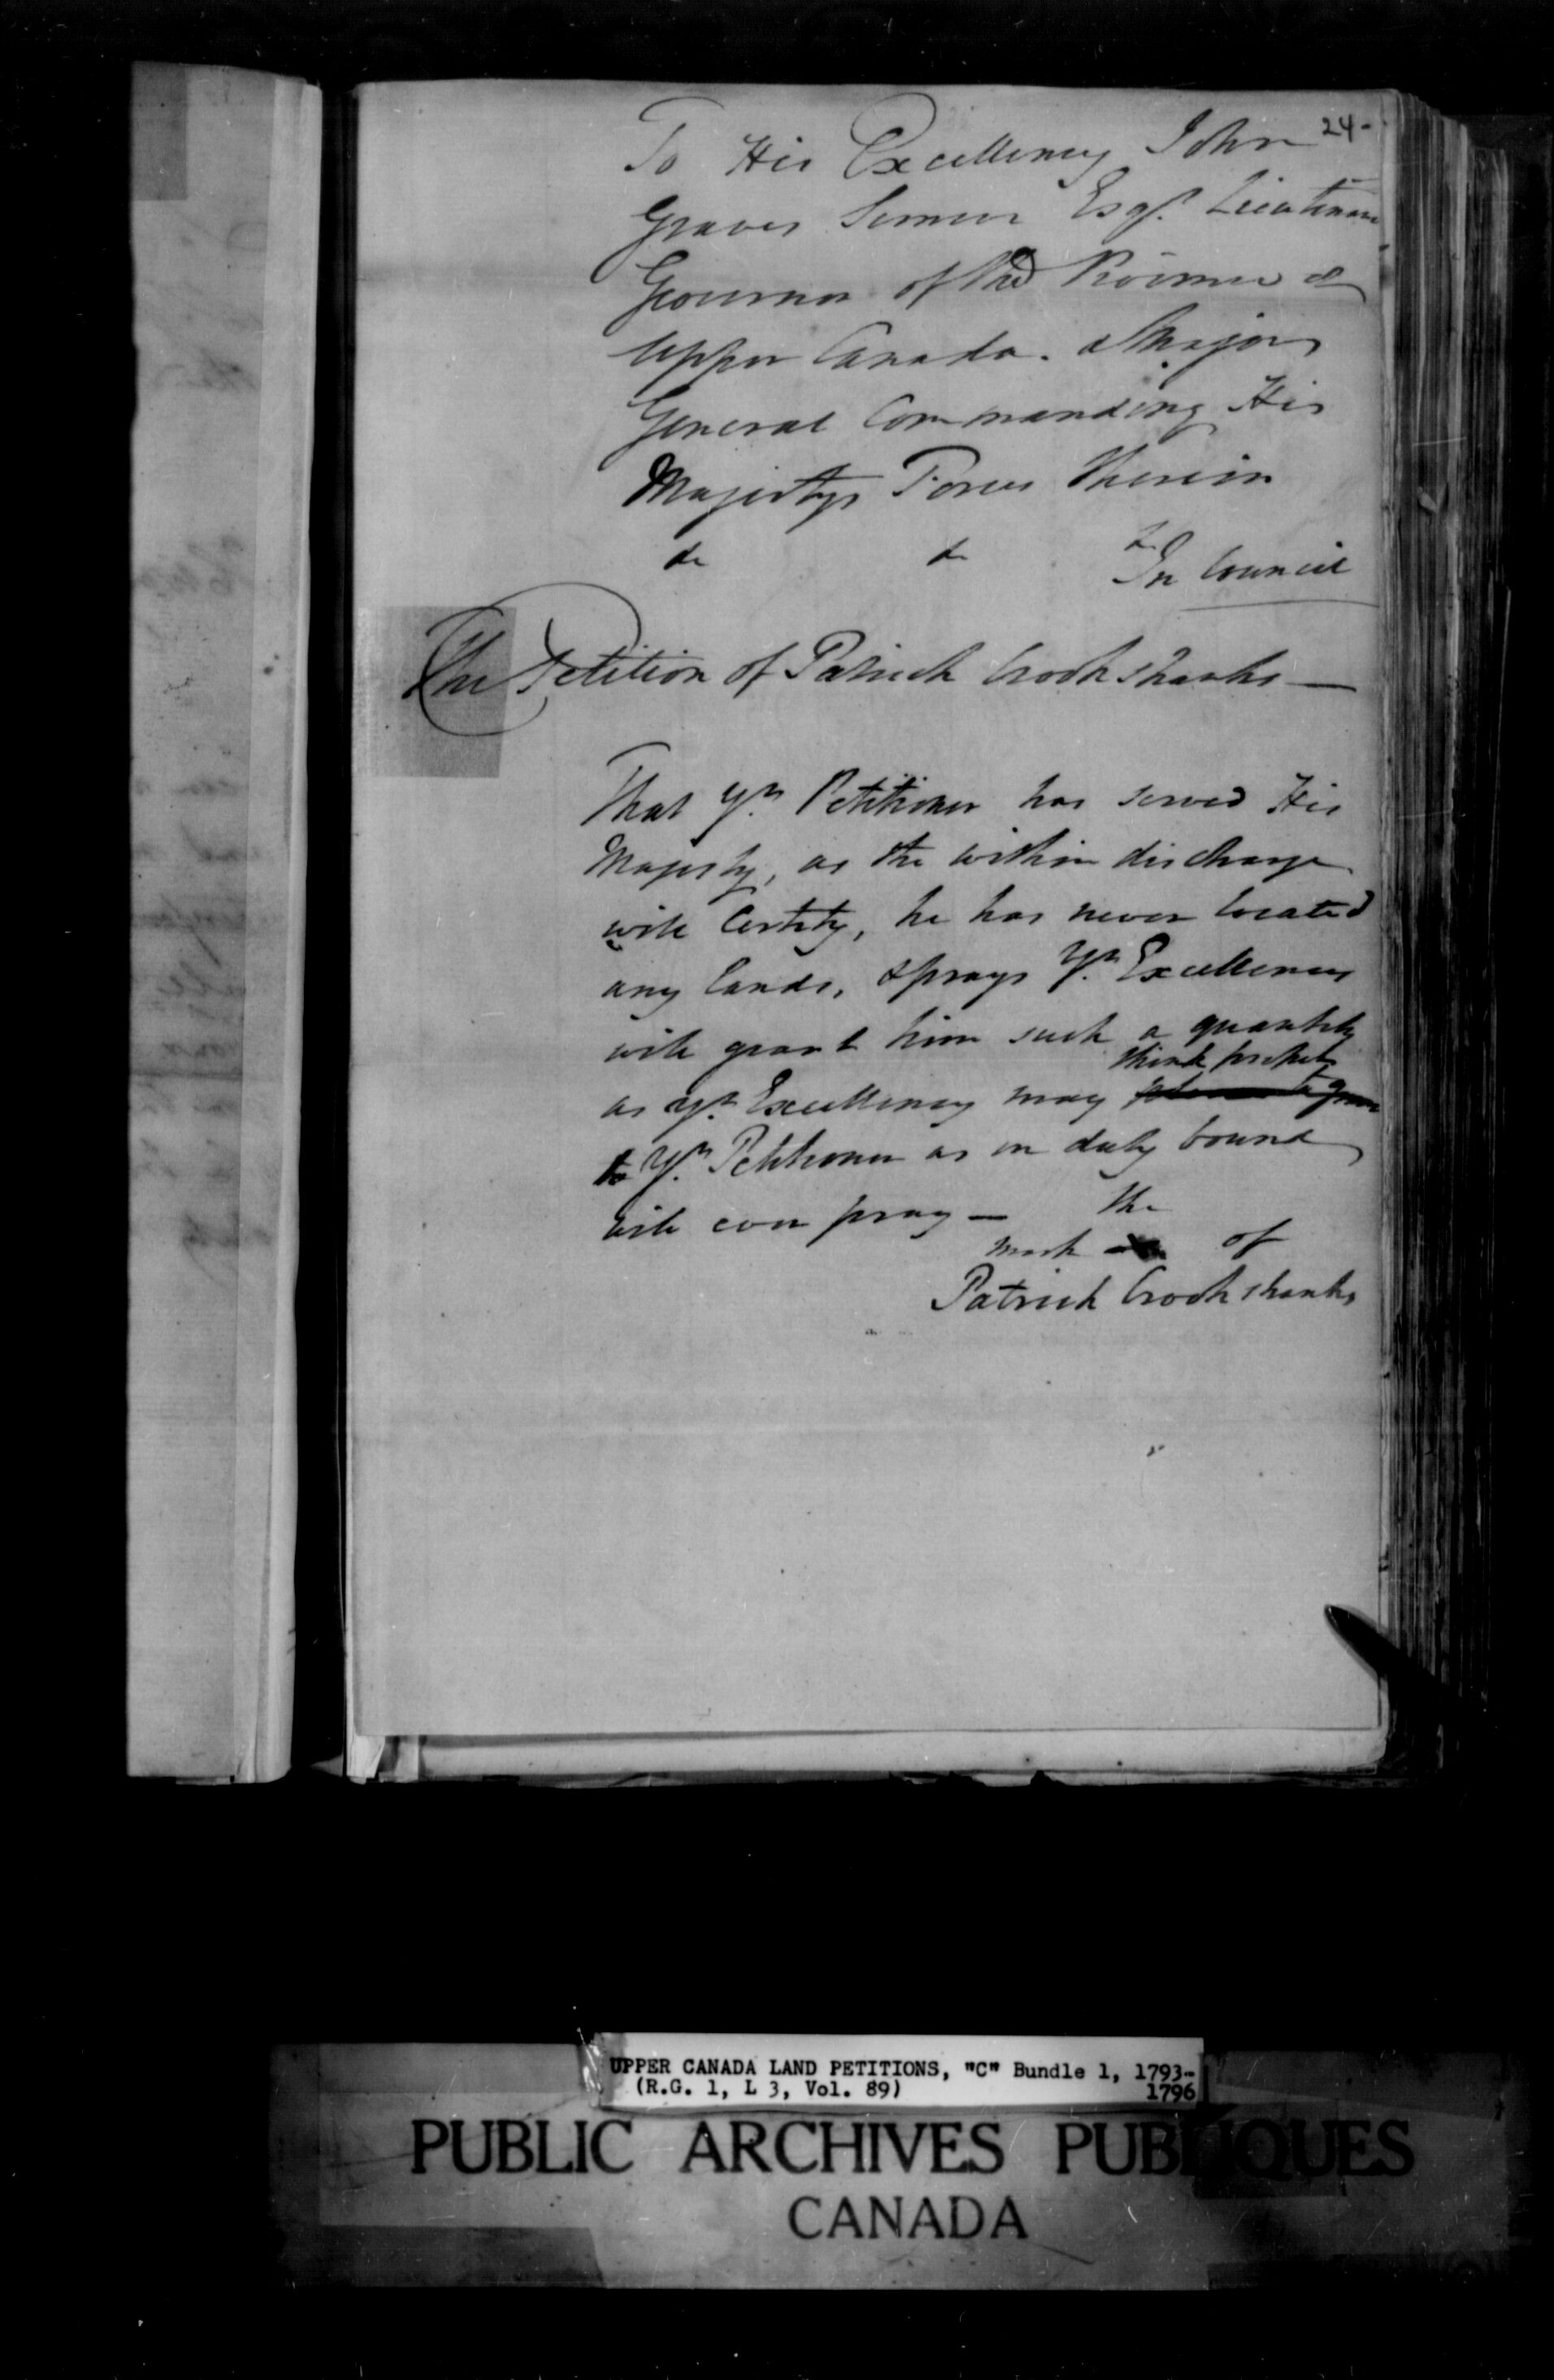 24-
To His Excellency John
Graves Simcoe Esqr. Lieutenant
Governor of the Province of
Upper Canada. & Major
General Commanding His
Majestys Forces therein
&c &c &c
In Council
The Petition of Patrick Crookshanks —
That Yr. Petitioner has served His
Majesty, as the within discharge
will Certify, he has never located
any Lands, & prays Yr. Excellency
will grant him such a quantity
think proper
as Yr. Excellency may please to grant
& Yr. Petitioner as in duty bound
will ever pray — the
mark x of
Patrick Crookshanks
UPPER CANADA LAND PETITIONS, "C" Bundle 1, 1793-
(R.G. 1, L 3, Vol. 89) 1796
PUBLIC ARCHIVES PUBLIQUES
CANADA